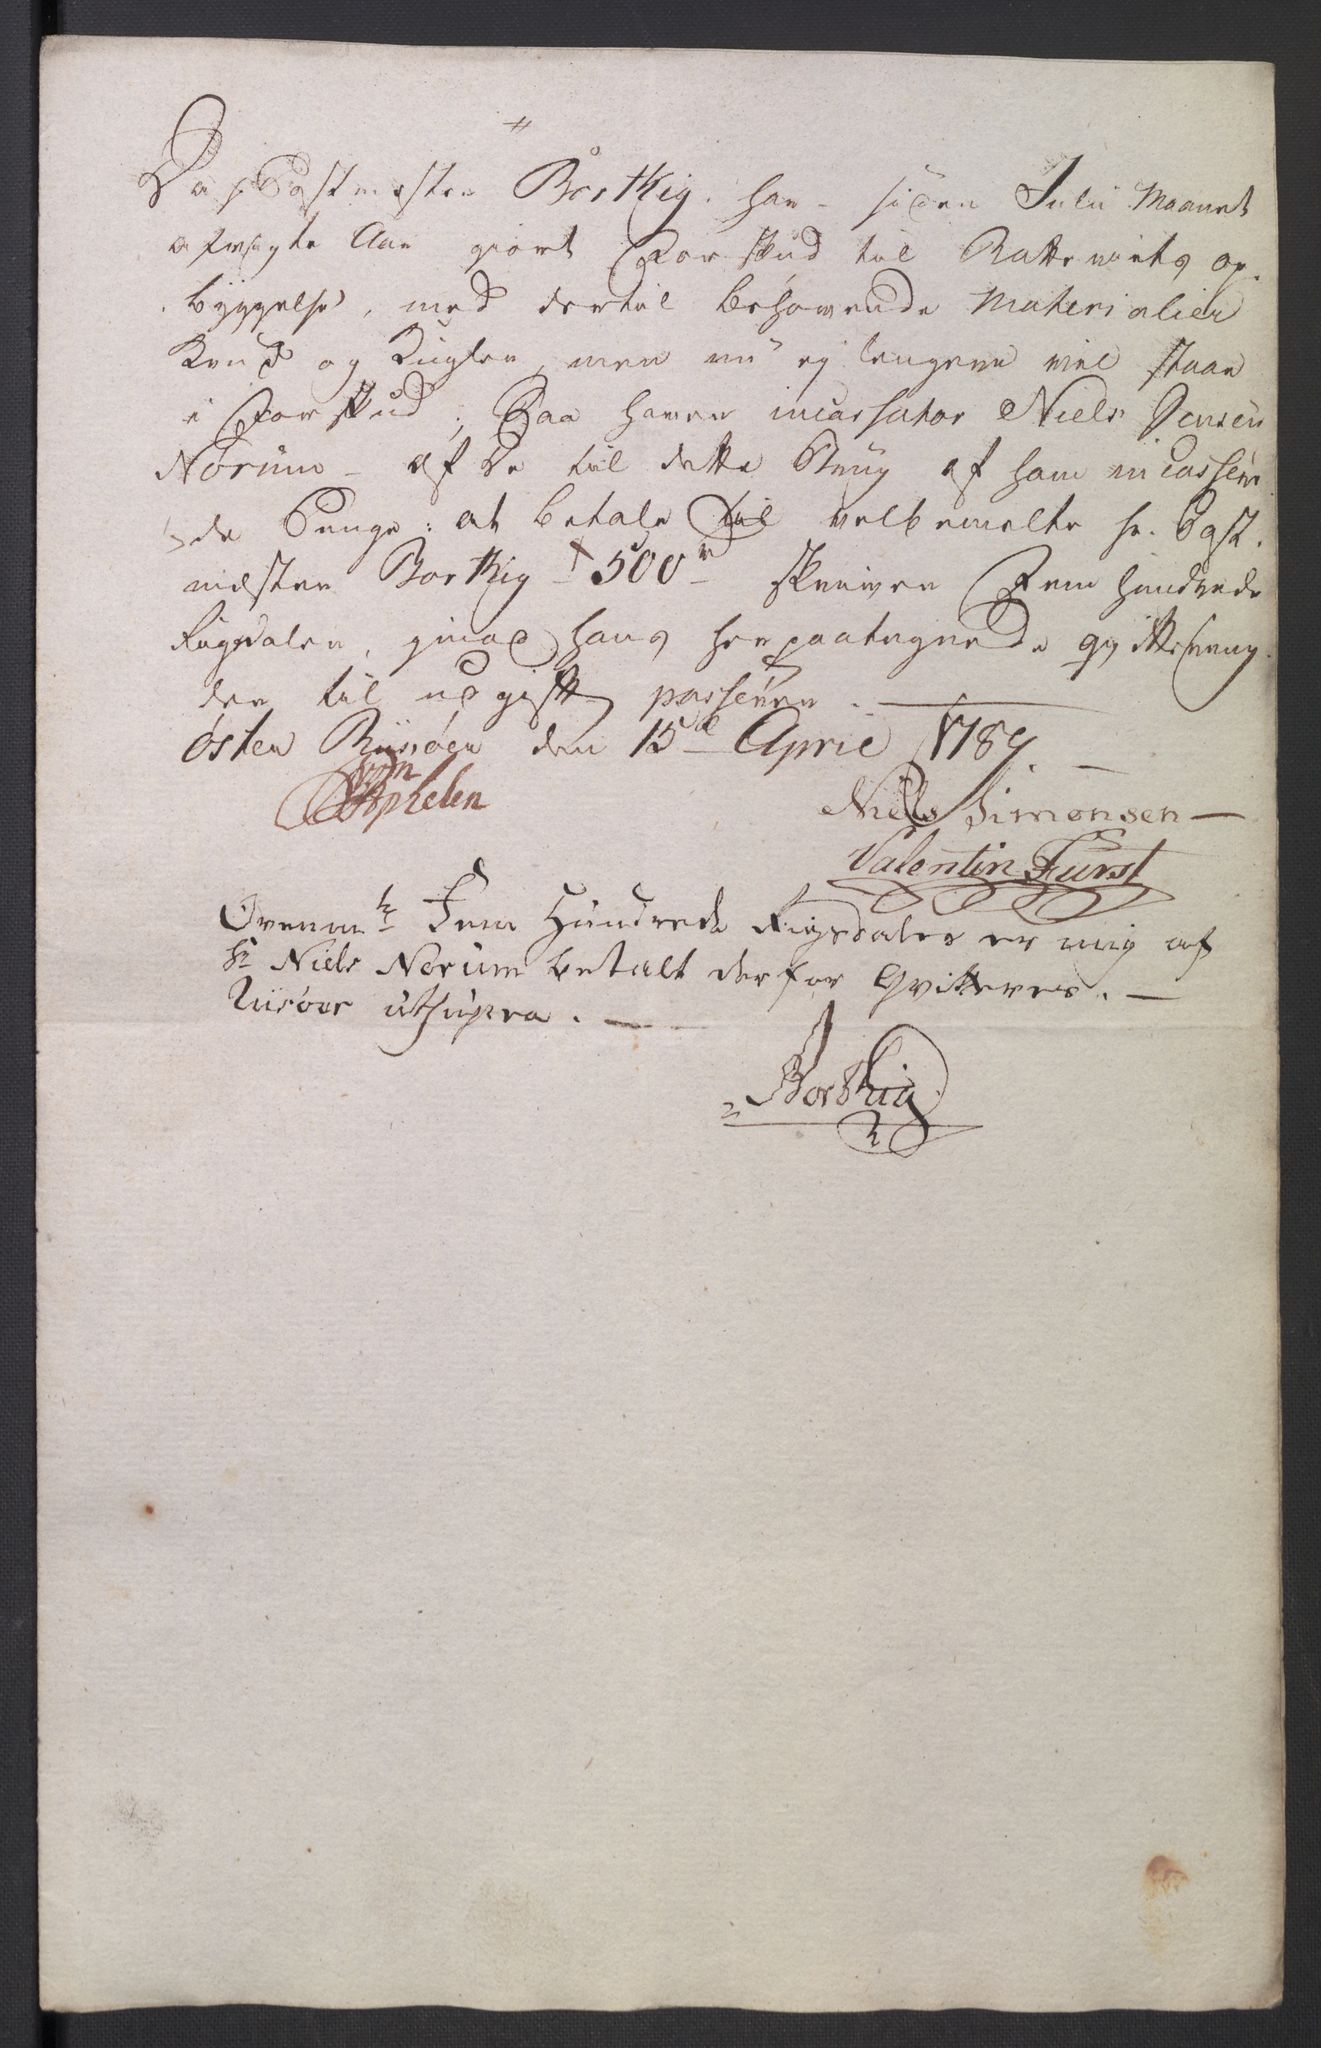 Da hr Postmester Borthig har siden Julii Maaned
afvigte Aar giort Forskud til Batteriets op-
byggelse, med dertil behøvende Materialier
Krud og Kugler, men nu ej lengere vil staae
i Forskud; Saa haver incassator Niels Jensen
Nørum af de til dette Brug af ham incasseren
de Penge: at betale til velbemelte hr. Post-
mester Borthig 500 rd skriver Fem hundrede
Rigsdaler, imod hans her paategnede qvittering
der til udgift passerer.
Øster Riisøer den 15de April 1789.
von Aphelen
Niels Simonsen
Valentin Furst
Ovenmte Fem Hundrede Rigsdaler er mig af
Sr Niels Nørum betalt derfor Qvitteres.
Riisøer ut supra.
Borthig